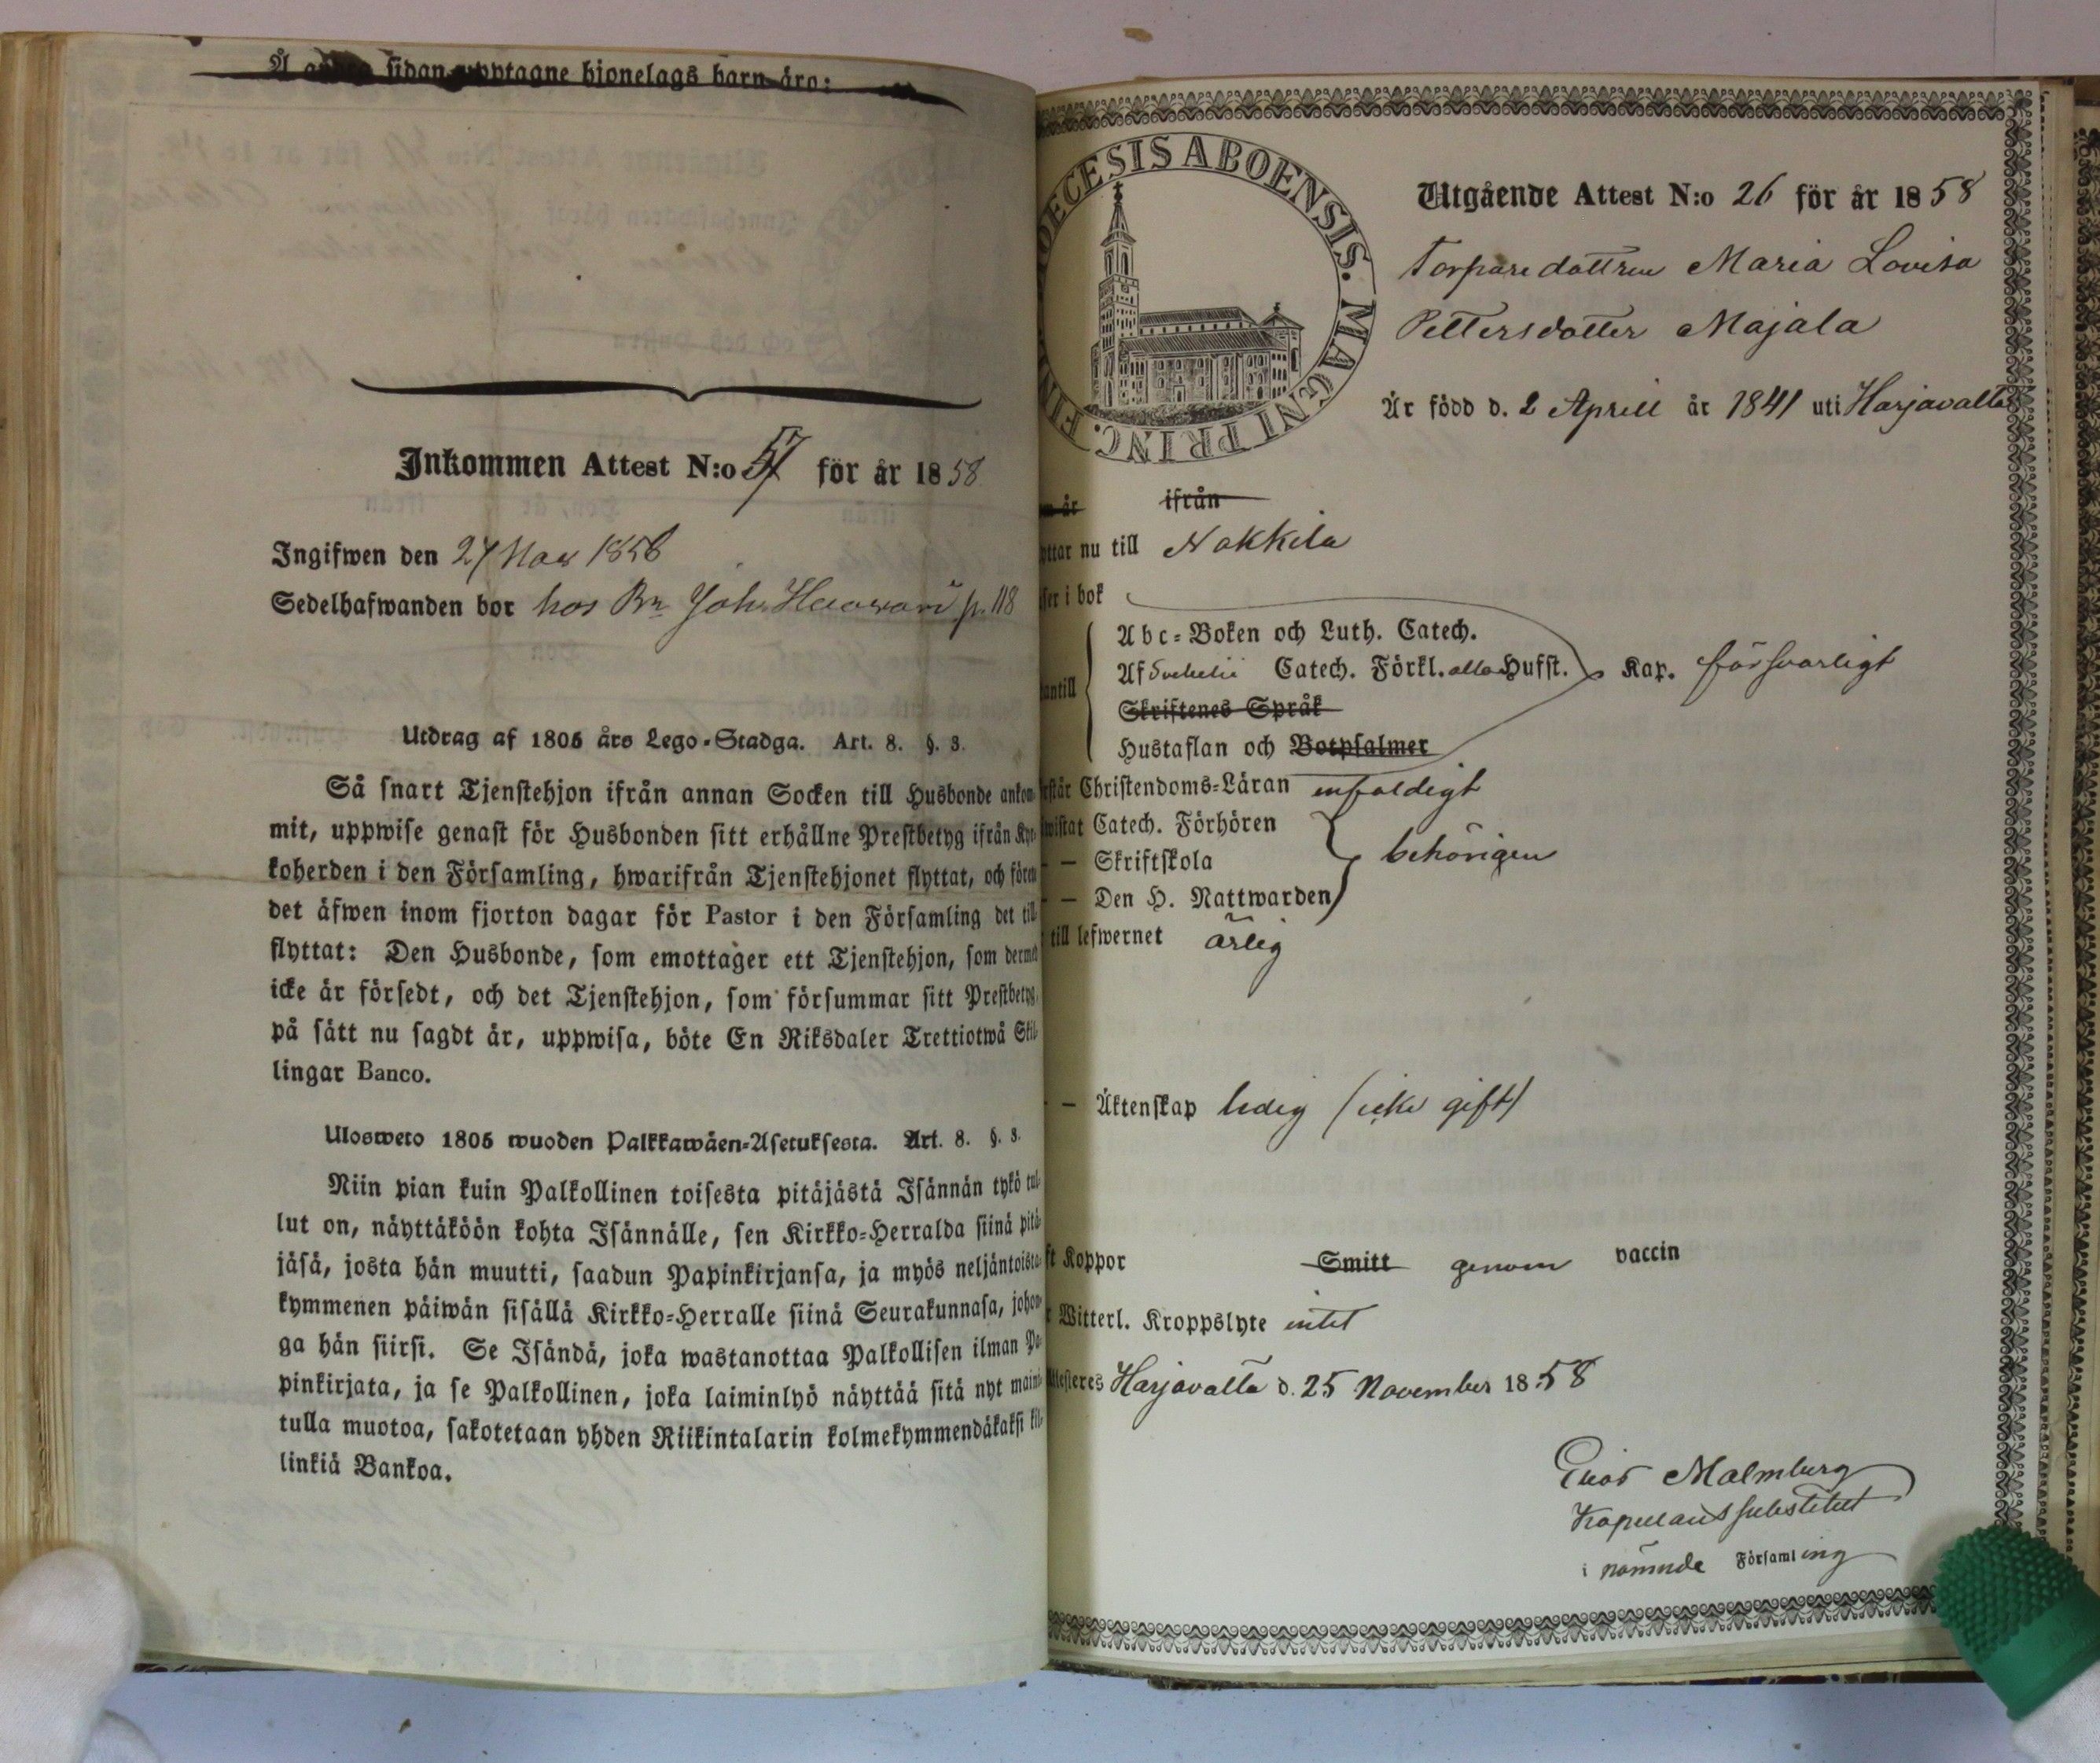 Å andra sidan upptagne hjonelags barn äro:
Inkommen Attest N:o 57 för år 1858
Ingifwen den 27 Nov 1858
Sedelhafwanden bor hos Bn Joh. p. 118
Utdrag af 1805 års Lego-Stadga. Art. 8. §. 3.
Så snart Tjenstehjon ifrån annan Socken till Husbonde ankom-
mit, uppwise genast för Husbonden sitt erhållne Prestbetyg ifrån Kyr-
koherden i den Församling, hwarifrån Tjenstehjonet flyttat, och förete
det äfwen inom fjorton dagar för Pastor i den Församling det till-
flyttat: Den Husbonde, som emottager ett Tjenstehjon, som dermed
icke är försedt, och det Tjenstehjon, som försummar sitt Prestbetyg,
på sätt nu sagdt är, uppwisa, böte En Riksdaler Trettiotwå Skil-
lingar Banco.
Ulosweto 1805 wuoden Palkkawäen-Asetuksesta. Art. 8. §. 3.
Niin pian kuin Palkollinen toisesta pitäjästä Isännän tykö tul-
lut on, näyttäköön kohta Isännälle, sen Kirkko-Herralda siinä pitä-
jäsä, josta hän muutti, saadun Papinkirjansa, ja myös neljäntoista-
kymmenen päiwän sisällä Kirkko-Herralle siinä Seurakunnasa, johon-
ga hän siirsi. Se Isändä, joka wastanottaa Palkollisen ilman Pa-
pinkirjata, ja se Palkollinen, joka laiminlyö näyttää sitä nyt maini-
tulla muotoa, sakotetaan yhden Riikintalarin kolmekymmendäkaksi kil-
linkiä Bankoa.
OECESIS ABOENSIS. MAGNI PRINC. FIN
Utgående Attest N:o 26 för år 1858
Torparedottren Maria Lovisa
Pettersdotter Majala
Är född d. 2 Aprill år 1841 uti Harjavalta
är ifrån
yttar nu till Nakkila
ser i bok
Abc-Boken och Luth. Catech.
Af Svebelii Catech. Förkl. alla Hufst. Kap. försvarligt
antill
Skriftenes Språk
Hustaflan och Botpsalmer
rstår Christendoms-Läran enfaldigt
wistat Catech. Förhören
— Skriftskola behörigen
— Den H. Nattwarden
till lefwernet ärlig
— Äktenskap ledig (icke gift)
ft Koppor Smitt genom vaccin
r Witterl. Kroppslyte intet
ttesteres Harjavalta d. 25 November 1858
Enos Malmberg
Kapellans substitut
i nämnde Församling